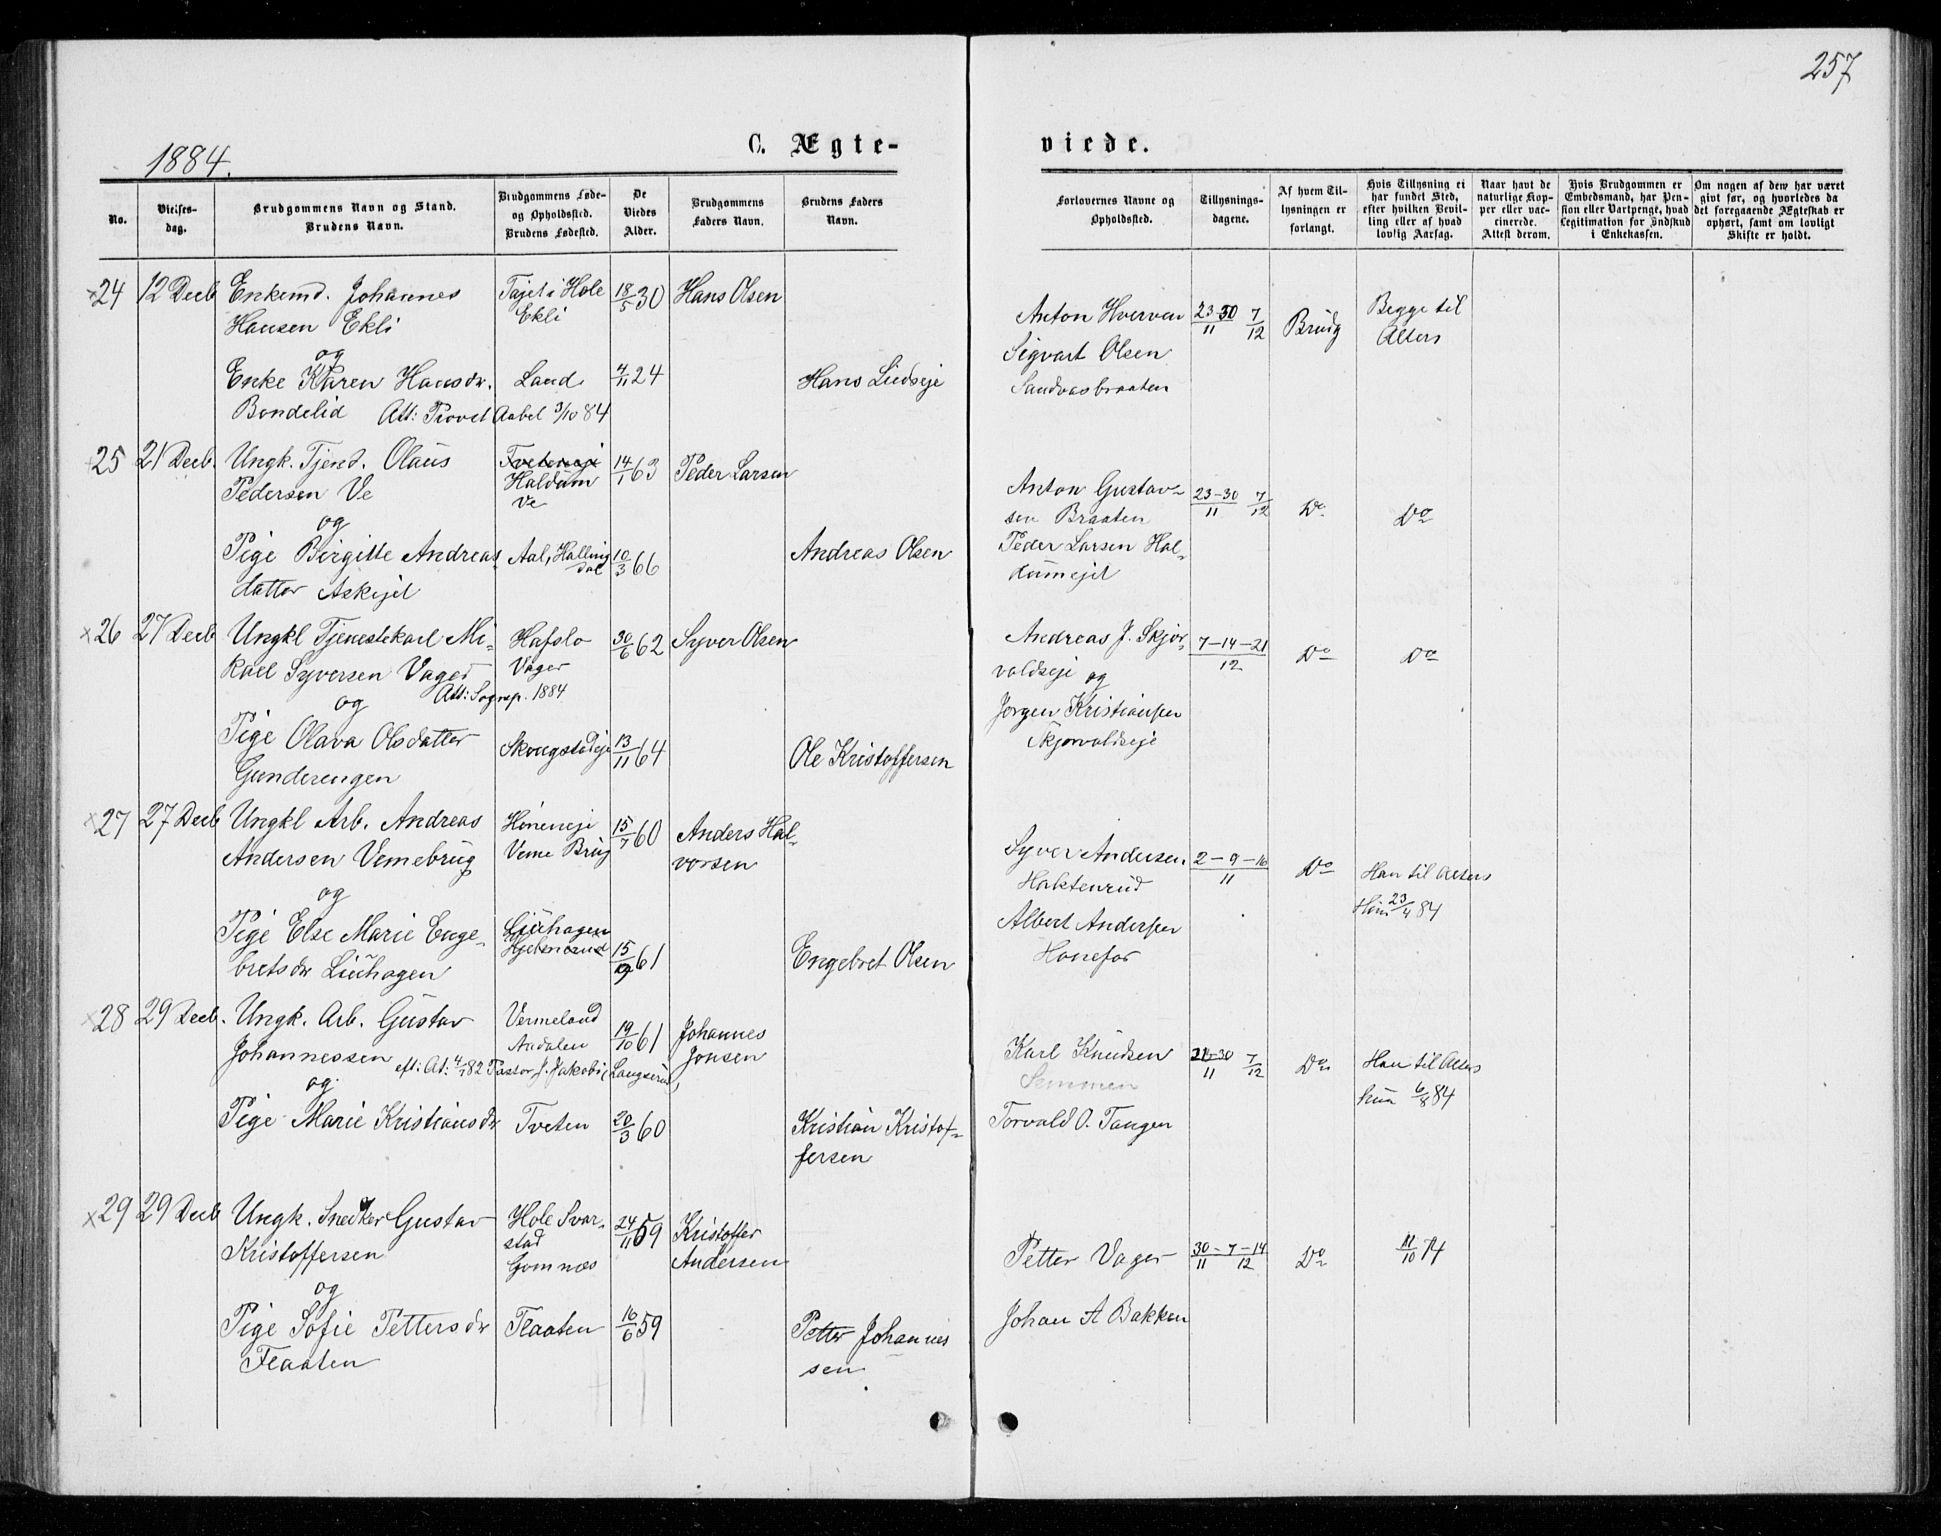 257
1884.
C. Ægte-
viede.
No.
Vielses-
dag.
Brudgommens Navn og Stand.
Brudens Navn.
Brudgommens Føde-
og Opholdssted.
Brudens Fødested.
De
Viedes
Alder.
Brudgommens
Faders Navn.
Brudens Faders
Navn.
Forlovernes Navne og
Opholdssted.
Tillysnings-
dagene.
Af hvem Til-
lysningen er
forlangt.
Hvis Tillysning ei
har fundet Sted,
efter hvilken Bevil-
ling eller af hvad
lovlig Aarsag.
Naar havt de
naturlige Kop-
per eller vac-
cinerede.
Attest derom.
Hvis Brudgommen er
Embedsmand, har Pen-
sion eller Vartpenge, hvad
Legitimation for Indskud
i Enkekassen.
Om nogen af dem har været
gift før, og hvorledes da
det foregaaende Ægteskab er
ophørt, samt om lovligt
Skifte er holdt.
×24 12 Decb Enkemd. Johannes
Hansen Ekli
Tajet i Hole
Ekli
18/5 30 Hans Olsen
og
Enke Karen Hansdr. Land 4/11 24 Hans Lindseje
Bondelid Att: Provst Aabel 3/10 84
Anton Hverven
Sigvart Olsen
Sandvasbraaten
23-30/11 7/12
Brudg
Begge til
Alters
25 21 Decb. Ungk. Tjend. Olaus
Pedersen Ve
Tveteneje
Haldum
Ve
14/1 63 Peder Larsen
og
Pige Birgitte Andreas
datter Askejet
Aal, Halling
dal
10/3 66 Andreas Olsen
Anton Gustav-
sen Braaten
Peder Larsen Hal-
dumejet
23-30/11 7/12
Do
Do
×26 27 Decb Ungkl Tjenestekarl Mi-
kael Syversen Vager
Hafslo
Vager
30/6 62 Syver Olsen
Att: Sognep. 1884
og
Pige Olava Olsdatter
Gunderengen
Skougstadeje 13/11 64 Ole Kristoffersen
Andreas J. Skjør-
valdseje og
Jørgen Kristiansen
Skjørvaldseje
7-14-21/12
Do
Do
×27 27 Decb Ungkl Arb. Andreas
Andersen Vemebrug
Høneneje
Veme Brug
15/7 60 Anders Hal-
vorsen
og
Pige Else Marie Enge-
bretsdr Liuhagen
Liuhagen
15/10 61 Engebret Olsen
Syver Andersen
Haktenrud
Albert Andersen
Hønefos
2-9-16/11
Do
Han til Alters
Hun 23/4 84
×28 29 Decb. Ungk. Arb. Gustav
Johannessen
Vermeland
Aadalen
19/10 61 Johannes
Jonsen
eft: At: 4/1 82 Pastor J. Jakobi (Langserud)
og
Pige Marie Kristiansdr Tveten 20/3 60 Kristian Kristof-
fersen
Karl Knudsen
Semmen
Torvald O. Tangen
7/12
Do
Han til Alters
hun 6/8 84
×29 29 Decb Ungk. Snedker Gustav
Kristoffersen
Hole Svar-
stad
Gomnæs
24/11 59 Kristoffer
Andersen
og
Pige Sofie Pettersdr
Flaaten
Flaaten 16/6 59 Petter Johannes
sen
Petter Vager
Johan A Bakken
30-7-14/11 12
Do
11/10 74